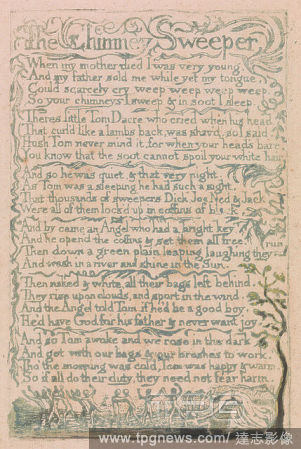 The Chimney Sweeper
When my mother died I was very young
And my father sold me while yet my tongue
Could scarcely cry weep weep weep weep
So your chimneys I sweep & in soot I sleep.
Theres little Tom Dacre who cried when his head
That curl'd like a lambs back, was shav'd, so I said
Hush Tom never mind it, for when your heads bare
You know that the soot cannot spoil your white hair
And so he was quiet, & that very night,
As Tom was a sleeping he had such a sight,
That thousands of sweepers Dick Joe Ned & Jack
Were all of them lock'd up in coffins of
And by came an Angel who had a bright key
And he open'd the coffins & set them all free.
Then down a green plain leaping laughing they run
And wash in a river and shine in the Sun.
Then naked & white, all their bags left behind,
They rise upon clouds, and sport in the wind
And the Angel told Tom if he'd be a good boy,
He'd have God for his father & never want joy.
And so Tom awoke and we rose in the dark
And got with our bags & our brushes to work.
Tho' the morning was cold, Tom was happy & warm
So if all do their duty, they need not fear harm.
www.tpgnews.com/ 達志影像